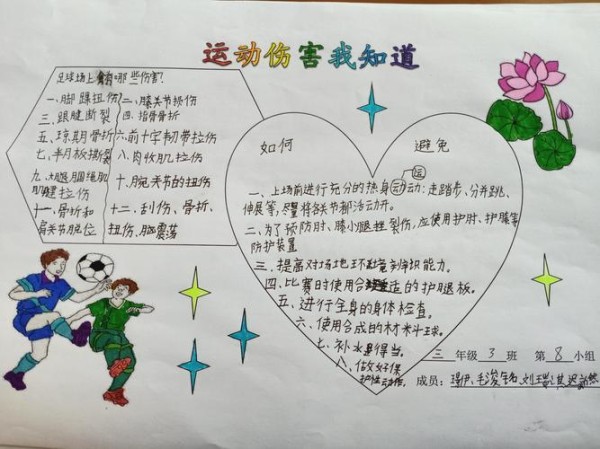 运动伤害我知道
足球场上有哪些伤害?
一、脚踝扭伤 二、膝关节损伤
三、跟腱断裂 四、指骨骨折
五、琼期骨折 六、前十字韧带拉伤
七、半月板撕裂 八、肉收肌拉伤
九、大腿腘绳肌
拉伤 十、腕关节的扭伤
十一、骨折和 十二、刮伤、骨折、
肩关节脱位 扭伤、脑震荡
如何 避免
一、上场前进行充分的热身运动:走踏步、分并跳、
伸展等,尽量将各关节都活动开。
二、为了预防肘、膝小腿挫裂伤,应使用护肘、护膝等
防护装置
三、提高对场地环境辨识能力。
四、比赛时使用合适的护腿板。
五、进行全身的身体检查。
六、使用合成的材料球。
七、补水要得当。
八、做好保
护性动作。
三 年级 3 班 第 8 小组
成员: